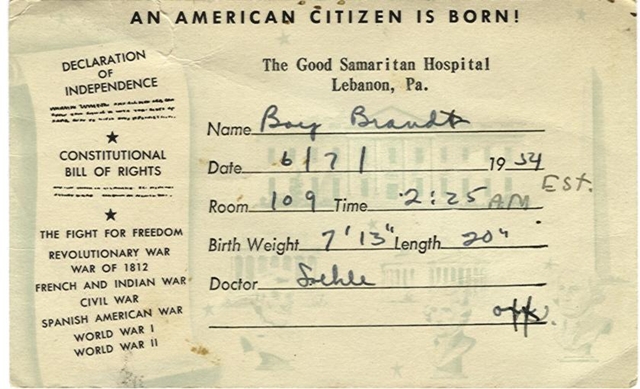 AN AMERICAN CITIZEN IS BORN!
DECLARATION
OF
INDEPENDENCE
★
CONSTITUTIONAL
BILL OF RIGHTS
★
THE FIGHT FOR FREEDOM
REVOLUTIONARY WAR
WAR OF 1812
FRENCH AND INDIAN WAR
CIVIL WAR
SPANISH AMERICAN WAR
WORLD WAR I
WORLD WAR II
The Good Samaritan Hospital
Lebanon, Pa.
Name Boy Brandt
Date 6/7/ 1954
Room 109 Time 2:25 AM EST.
Birth Weight 7'13" Length 20"
Doctor